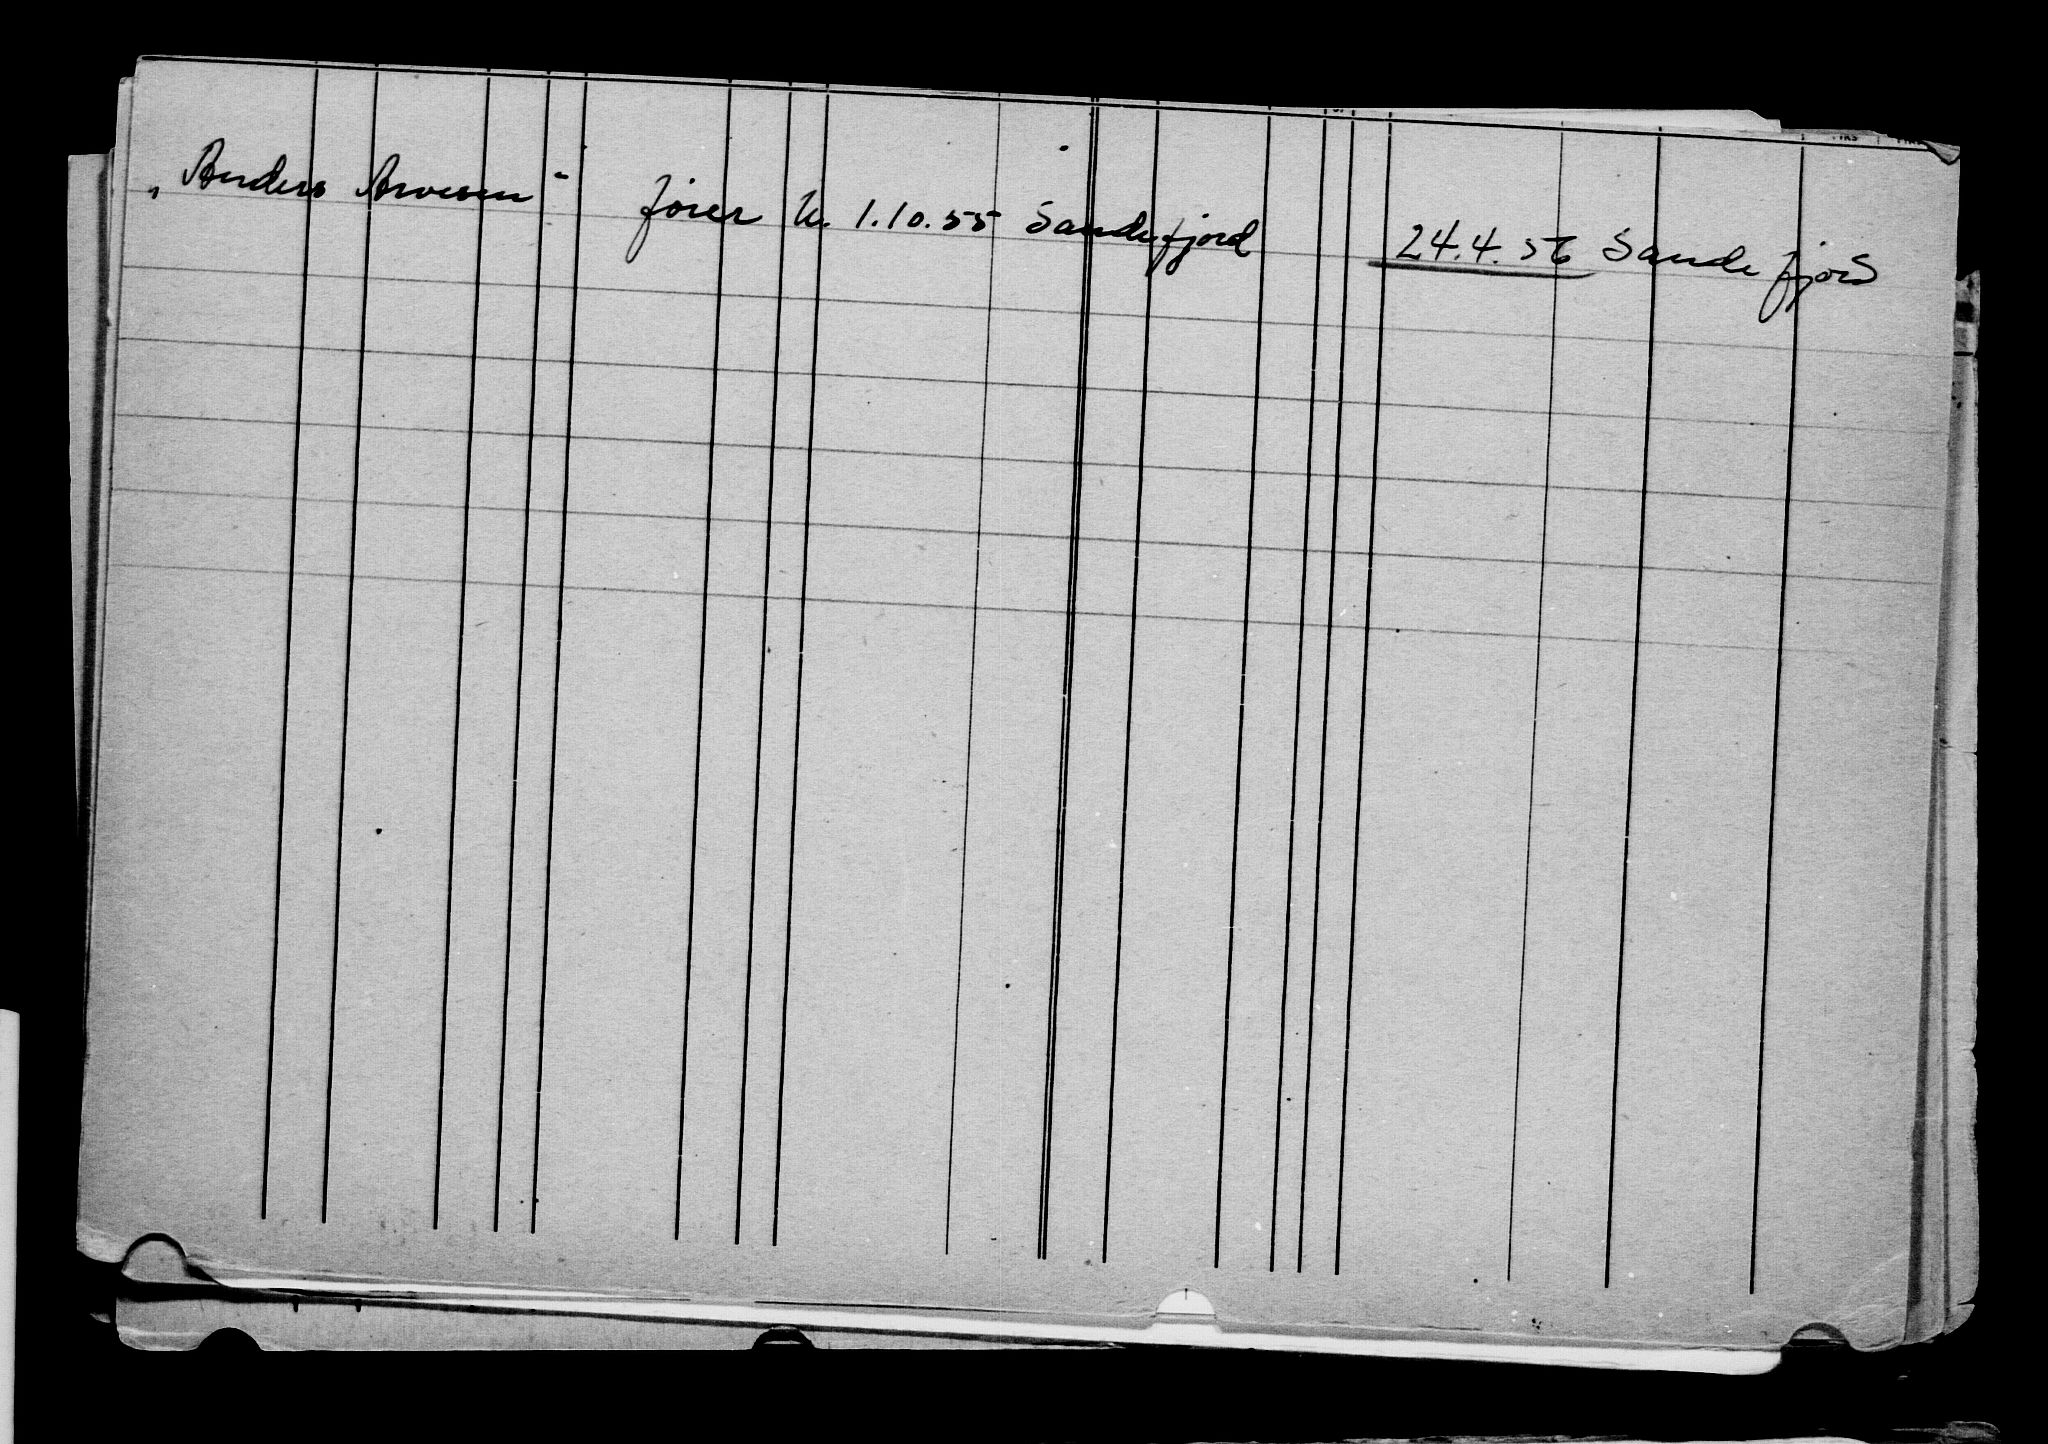 "Anders Arvesen" fører U. 1.10.55 Sandefjord 24.4.56 Sandefjord